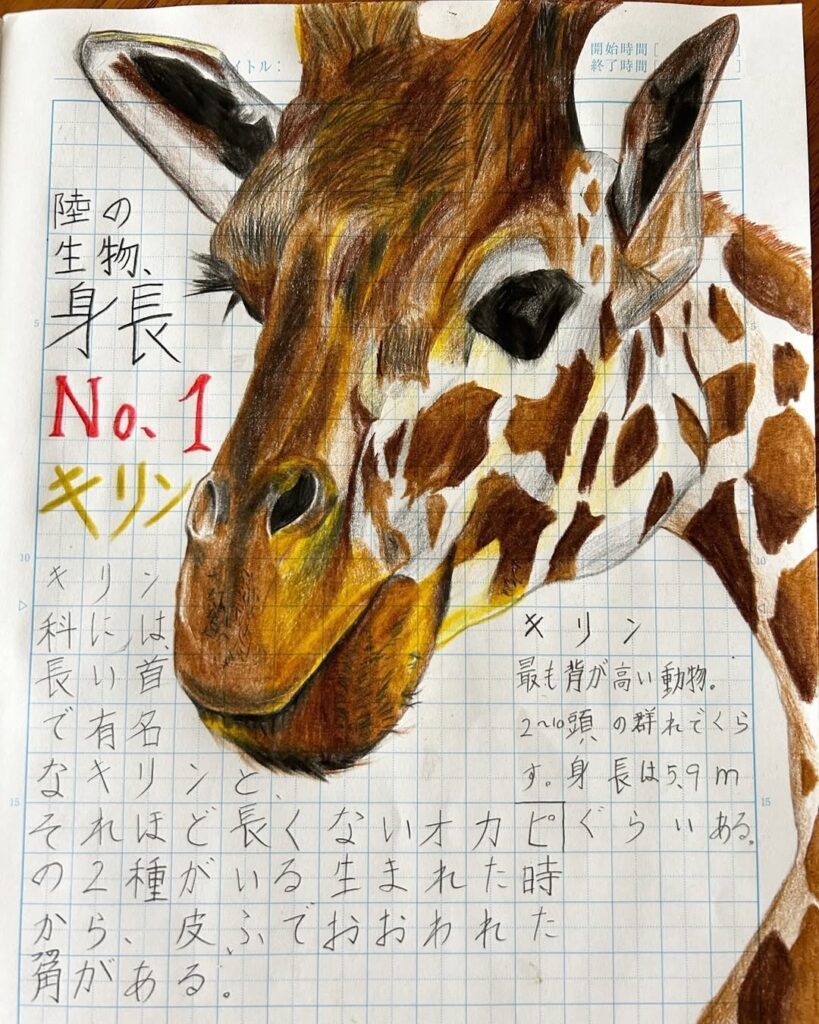 イトル：
開始時間［
終了時間［ ］
陸の
生物、
身長
No.1
キリン
キリン
科には、
長い首
で有名
なキリンと、
それほど長くないオカピ
の2種がいる生まれた時
から、皮ふでおおわれた
角がある。
キリン
最も背が高い動物。
2〜10頭の群れでくら
す。身長は5.9m
ぐらいある。
5
10
15
5
10
15